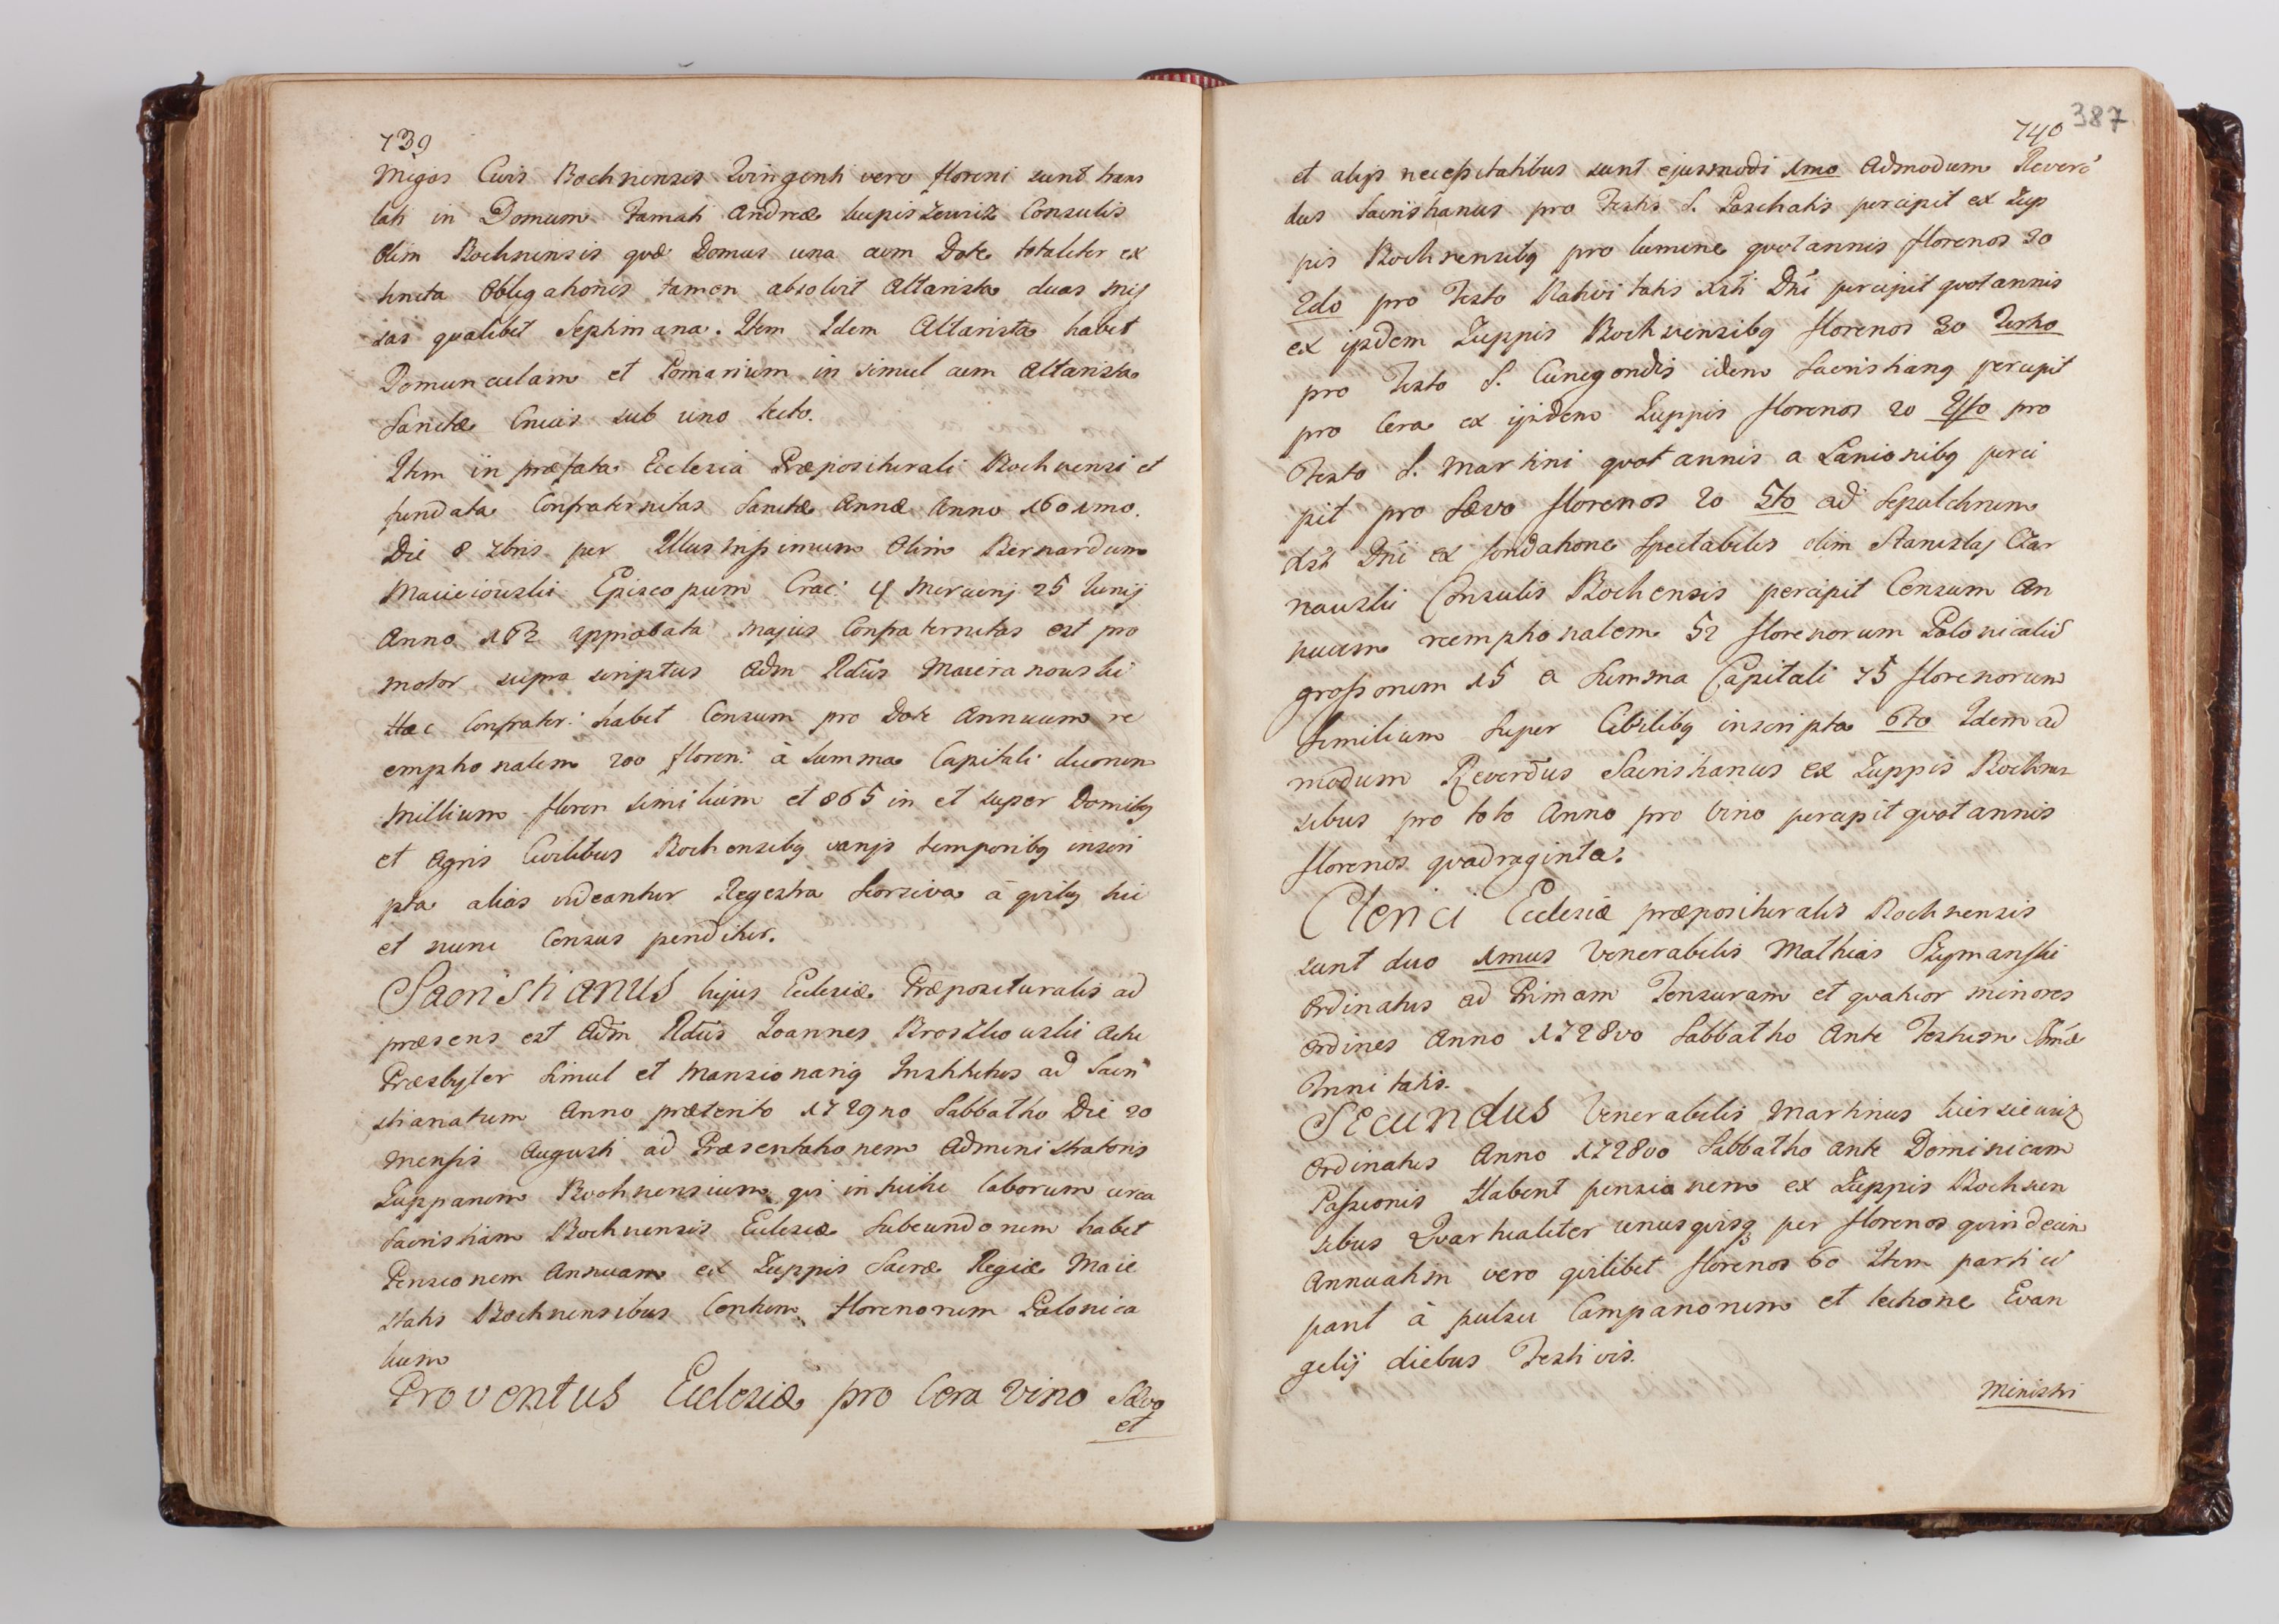 739
Migas Civis Bochnensis Quingenti vero floreni sunt trans
lati in Domum Famati Andreæ Lupiszewicz Consulis
olim Bochnensis quæ Domus una cum Dote totaliter ex
tincta Obligationis tamen absolvit Altarista duas mis
sas qualibet Septimana. Item Idem Altarista habet
Domunculam et Pomarium in simul cum Altarista
Sanctæ Crucis sub uno tecto.
Item in præfata Ecclesia Præpositurali Bochnensi et
fundata Confraternitas Sanctæ Annæ Anno 1601mo.
Die 8 7bris per Illustrissimum Olim Bernardum
Macieiowski Episcopum Crac: 4 Mercurij 25 Junij
Anno 162 approbata majus Confraternitas est pro
motor supra scriptus Adm Rdus Macieranowski
Hæc Confrater: habet Censum pro Dote Annuum re
emptionalem 200 floren: à Summa Capitali duorum
millium floren similium et 865 in et super Domibq
et Agris Civilibus Bochensibq varijs temporibq inscri
pta alias videantur Regestra Seorsiva à quibq hic
et nunc Census penditur.
Sacristianus hujus Ecclesiæ Præposituralis ad
præsens est Adm Rdus Joannes Broszkowski actu
Præsbyter simul et Mansionariq Institutus ad Sacri
stianatum Anno præterito 1729no Sabbatho Die 20
Mensis Augusti ad Præsentationem Administratoris
Zupparum Bochnensium qui intuitu laborum circa
Sacristiam Bochnensis Eclesiæ Subeundorum habet
Pensionem Annuam ex Zuppis Sacræ Regiæ Maie
statis Bochnensibus Centum florenorum Polonica
lium
Proventus Eclesiæ pro Cera Vino Sævo
et
740
387
et alijs necessitatibus sunt ejusmodi 1mo Admodum Reverē
dus Sacristianus pro Festis S. Paschatis percipit ex Zup
pis Bochnensibq pro lumine quotannis florenos 30
2do pro Festo Nativitatis Xsti Dni percipit quotannis
ex ijsdem Zuppis Bochnensibq florenos 30 Tertio
pro Festo S. Cunegondis idem Sacristianq percipit
pro Cera ex ijsdem Zuppis florenos 20 4to pro
Festo S. Martini quot annis a Lanionibq perci
pit pro Sævo florenos 20 5to ad Sepulchrum
Xsti Dni ex fondatione Spectabilis olim Stanislaj Czar
nowski Consulis Bochensis percipit Censum an
nuum reemptionalem 52 florenorum Polonicaliū
grossorum 15 a Summa Capitali 75 florenorum
Similium Super Civilibq inscripta 6to Idem ad
modum Reverdus Sacristianus ex Zuppis Bochnen
sibus pro toto Anno pro Vino percipit quot annis
florenos quadraginta.
Clerici Ecclesiæ præposituralis Bochnensis
sunt duo 1mus Venerabilis Mathias Szymanski
Ordinatus ad Primam Tonsuram et quatuor minores
Ordines Anno 1728vo Sabbatho Ante Festum Smæ
Trinitatis.
Secundus Venerabilis Martinus
Ordinatus Anno 1728vo Sabbatho ante Dominicam
Passionis Habent pensionem ex Zuppis Bochnen
sibus Quartualiter unusquisq per florenos quindecim
Annuatim vero quilibet florenos 60 Item partici
pant à pulsu Campanorum et lectione Evan
gelij diebus Festivis.
Ministri